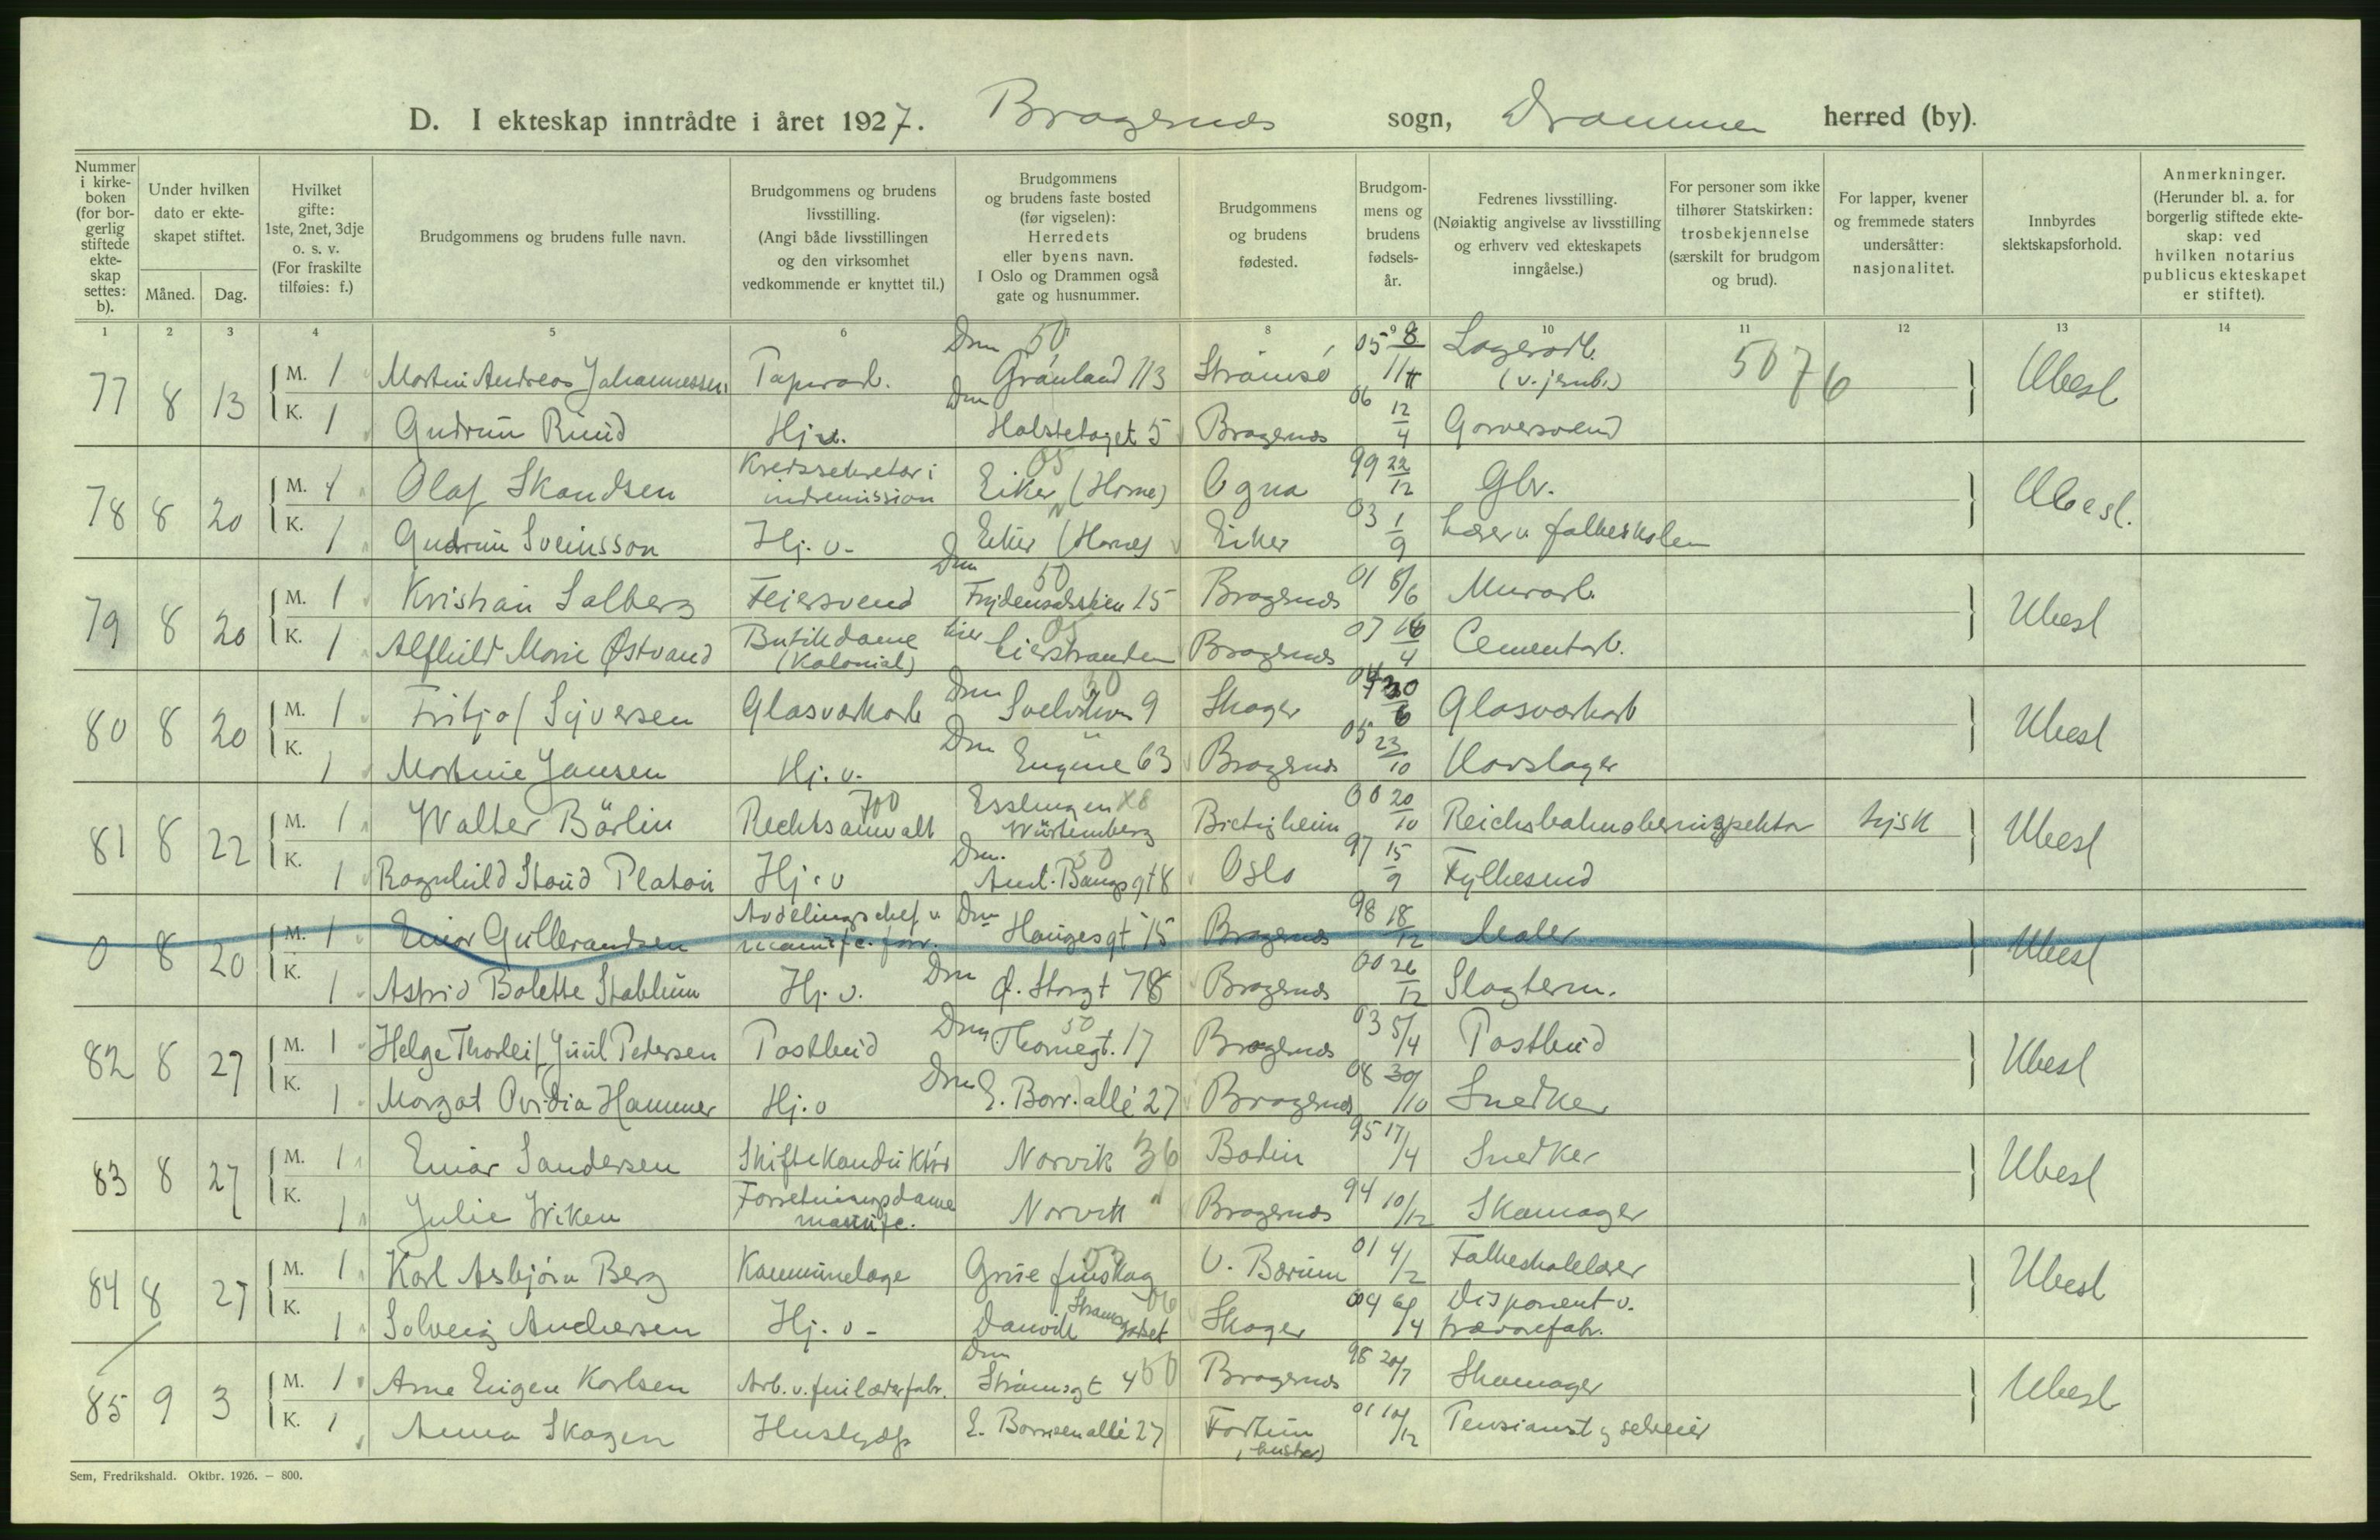 D. I ekteskap inntrådte i året 1927. Bragernes sogn, Drammen herred (by).
Nummer i kirke-boken (for bor-gerlig stiftede ekte-skap settes: b).
Under hvilken dato er ekte-skapet stiftet.
Måned. Dag.
Hvilket gifte: 1ste, 2net, 3dje o. s. v. (For fraskilte tilføies: f.)
Brudgommens og brudens fulle navn.
Brudgommens og brudens livsstilling. (Angi både livsstillingen og den virksomhet vedkommende er knyttet til.)
Brudgommens og brudens faste bosted (før vigselen): Herredets eller byens navn. I Oslo og Drammen også gate og husnummer.
Brudgommens og brudens fødested.
Brudgom-mens og brudens fødsels-år.
Fedrenes livsstilling. (Nøiaktig angivelse av livsstilling og erhverv ved ekteskapets inngåelse.)
For personer som ikke tilhører Statskirken: trosbekjennelse (særskilt for brudgom og brud).
For lapper, kvener og fremmede staters undersåtter: nasjonalitet.
Innbyrdes slektskapsforhold.
Anmerkninger. (Herunder bl. a. for borgerlig stiftede ekte-skap: ved hvilken notarius publicus ekteskapet er stiftet).
1 2 3 4 5 6 8 10 11 12 13 14
77 8 13 M. 1 Martin Andreas Johannessen Papirarb. Drm 50 Grønland 113 Strømsø 05 8/11 Lagerarb. (v. jernb.) 5076 Ubesl
K. 1 Gudrun Ruud Hj.v. Drm Holstetoget 5 Bragernes 06 12/4 Garversvend
78 8 20 M. 1 Olaf Skandsen Kredssekretær i indremission 05 Eiker (Horne) Ogna 99 22/12 Gbr. Ubesl.
K. 1 Gudrun Sveinsson Hj. v. Eiker (Horne) Eiker 03 1/9 Lærer v. folkeskolen
79 8 20 M. 1 Kristian Solberg Feiersvend Drm 50 Frydendalslien 15 Bragernes 01 8/6 Murarb. Ubesl
K. 1 Alfhild Marie Østvand Butikdame (Kolonial) Lier 05 Lierstranden Bragernes 07 16/4 Cementarb.
80 8 20 M. 1 Fritjof Syversen Glasværkarb Drm 50 Svelvikvn 9 Skoger 04 30/6 Glasværkarb Ubesl
K. 1 Martine Jansen Hj. v. Drm Engene 63 Bragernes 05 23/10 Hovslager
81 8 22 M. 1 Walter Bärlin Rechtsanwalt 700 Esslingen X8 Württemberg Bietigheim 00 20/10 Reichsbahnoberinspektor tysk Ubesl
K. 1 Ragnhild Stoud Platou Hj. v Drm. 50 Aml. Bangs gt 8 Oslo 97 15/9 Fylkesmd
0 8 20 M. 1 Einar Gulbrandsen Avdelingschef v manufc. forr. Drm Haugesgt 15 Bragernes 98 18/12 Maler Ubesl
K. 1 Astrid Bolette Stablum Hj. v. Drm Ø. Storgt 78 Bragernes 00 26/12 Slagterm.
82 8 27 M. 1 Helge Thorleif Juul Petersen Postbud Drm 50 Thornegt. 17 Bragernes 03 5/4 Postbud Ubesl
K. 1 Margot Ovidia Hammer Hj. v Drm E. Borr. allé 27 Bragernes 08 30/10 Snedker
83 8 27 M. 1 Einar Sandersen Skiftekonduktør Narvik 36 Bodin 95 17/4 Snedker Ubesl
K. 1 Julie Wiken Forretningsdame manufc. Narvik " Bragernes 94 10/12 Skomager
84 8 27 M. 1 Karl Asbjørn Berg Kommunelæge Grue finskog 03 V. Bærum 01 4/2 Folkeskolelærer Ubesl
K. 1 Solveig Andersen Hj. v. Danvik Strømsgodset 06 Skoger 04 6/4 Disponent v. trævarefabr.
85 9 3 M. 1 Arne Eugen Karlsen Arb. v. finlæderfabr. Drm Strømsgt 4 50 Bragernes 98 20/7 Skomager Ubesl
K. 1 Anna Skagen Hushjælp E. Borresen allé 27 Fortun (Luster) 01 10/12 Pensionist og selveier
Sem, Fredrikshald. Oktbr. 1926. — 800.